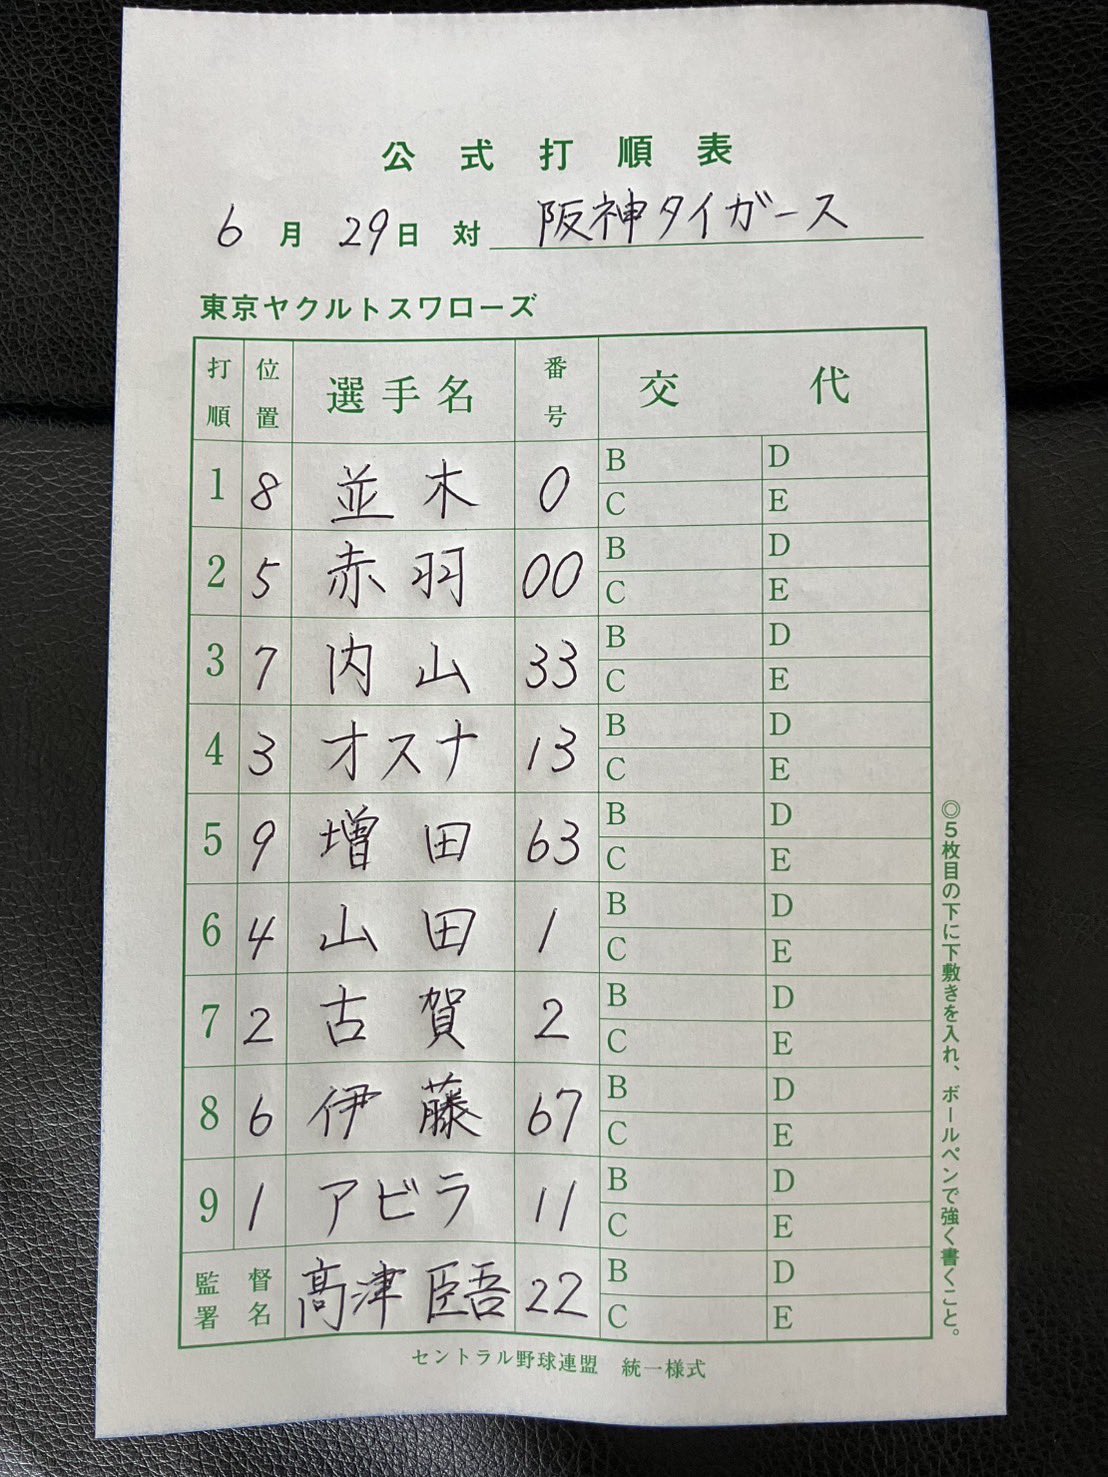 公式打順表
6月29日 対 阪神タイガース
東京ヤクルトスワローズ
打順 位置 選手名 番号 交代
1 8 並木 0 B D
C E
2 5 赤羽 00 B D
C E
3 7 内山 33 B D
C E
4 3 オスナ 13 B D
C E
5 9 増田 63 B D
C E
6 4 山田 1 B D
C E
7 2 古賀 2 B D
C E
8 6 伊藤 67 B D
C E
9 1 アビラ 11 B D
C E
監督署名 髙津臣吾 22 B D
C E
セントラル野球連盟 統一様式
◎5枚目の下に下敷きを入れ、ボールペンで強く書くこと。